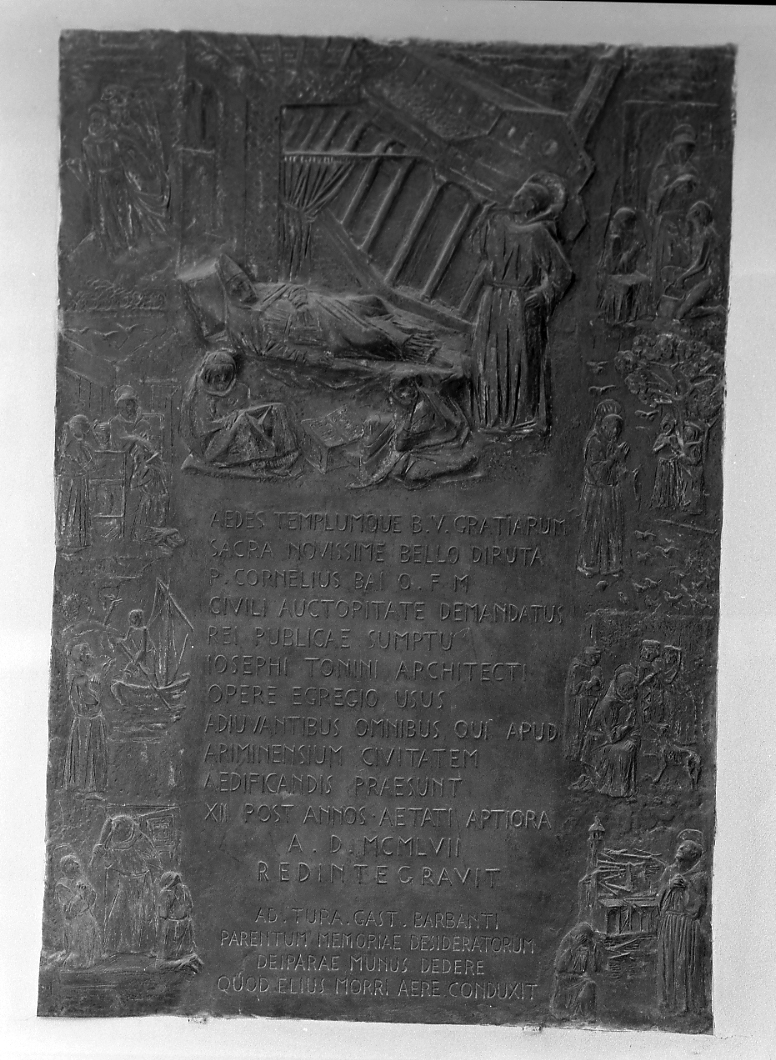 AEDES TEMPLUMQUE B.V. GRATIARUM
SACRA NOVISSIME BELLO DIRUTA
P. CORNELIUS BAI O.F.M
CIVILI AUCTORITATE DEMANDATUS
REI PUBLICAE SUMPTU
IOSEPHI TONINI ARCHITECTI
OPERE EGREGIO USUS
ADIUVANTIBUS OMNIBUS QUI APUD
ARIMINENSIUM CIVITATEM
AEDIFICANDIS PRAESUNT
XII POST ANNOS·AETATI APTIORA
A. D. MCMLVII
REDINTEGRAVIT
AD. TURA. GAST. BARBANTI
PARENTUM MEMORIAE DESIDERATORUM
DEIPARAE MUNUS DEDERE
QUOD ELIUS MORRI AERE CONDUXIT